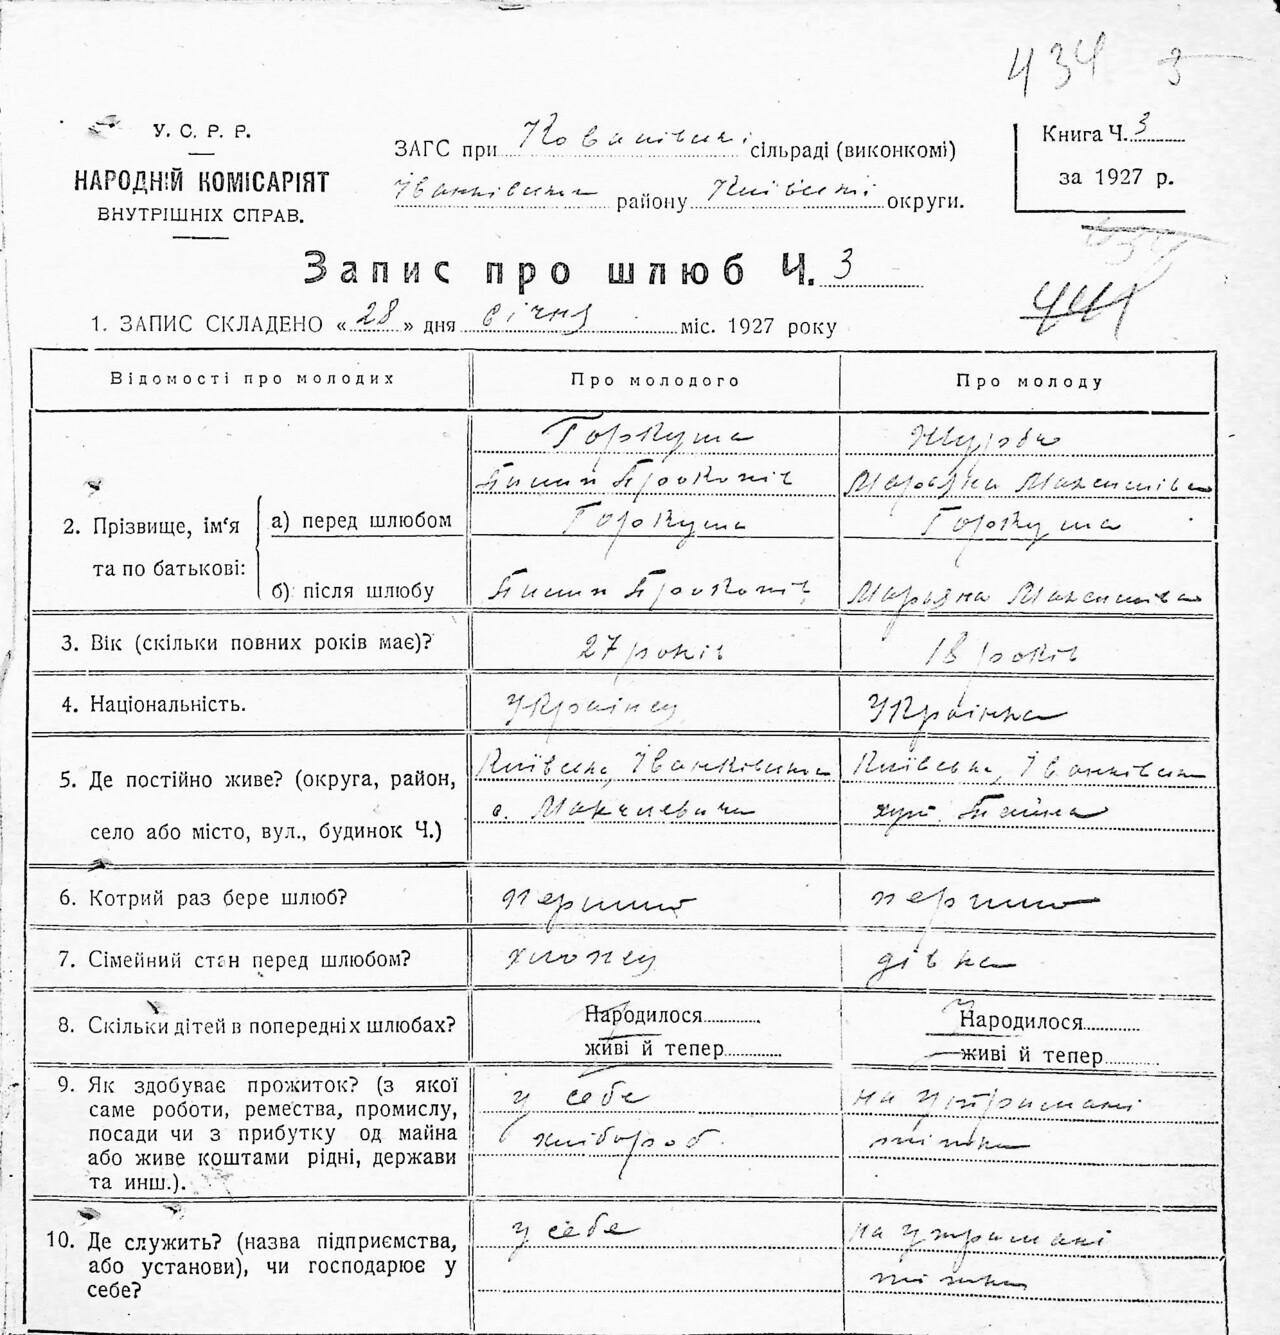 434 3
У. С. Р. Р.
НАРОДНІЙ КОМІСАРІЯТ
ВНУТРІШНІХ СПРАВ.
ЗАГС при сільраді (виконкомі)
району округи.
Книга Ч. 3
за 1927 р.
441
Запис про шлюб Ч. 3
1. ЗАПИС СКЛАДЕНО « 28 » дня січня міс. 1927 року
Відомості про молодих Про молодого Про молоду
2. Прізвище, ім'я та по батькові:
а) перед шлюбом
Горкуша
Прокопів
Журба
Мар'яна Максимівна
б) після шлюбу
Горкуша
Прокопів
Горкуша
Мар'яна Максимівна
3. Вік (скільки повних років має)? 27 років 18 років
4. Національність. Українец Українка
5. Де постійно живе? (округа, район, село або місто, вул., будинок Ч.)
с.
хут.
6. Котрий раз бере шлюб?
7. Сімейний стан перед шлюбом? хлопец дівка
8. Скільки дітей в попередніх шлюбах?
Народилося
живі й тепер
Народилося
живі й тепер
9. Як здобуває прожиток? (з якої
саме роботи, ремества, промислу,
посади чи з прибутку од майна
або живе коштами рідні, держави
та инш.).
у себе
хлібороб
на утримані
10. Де служить? (назва підприємства,
або установи), чи господарює у
себе?
у себе
на утримані